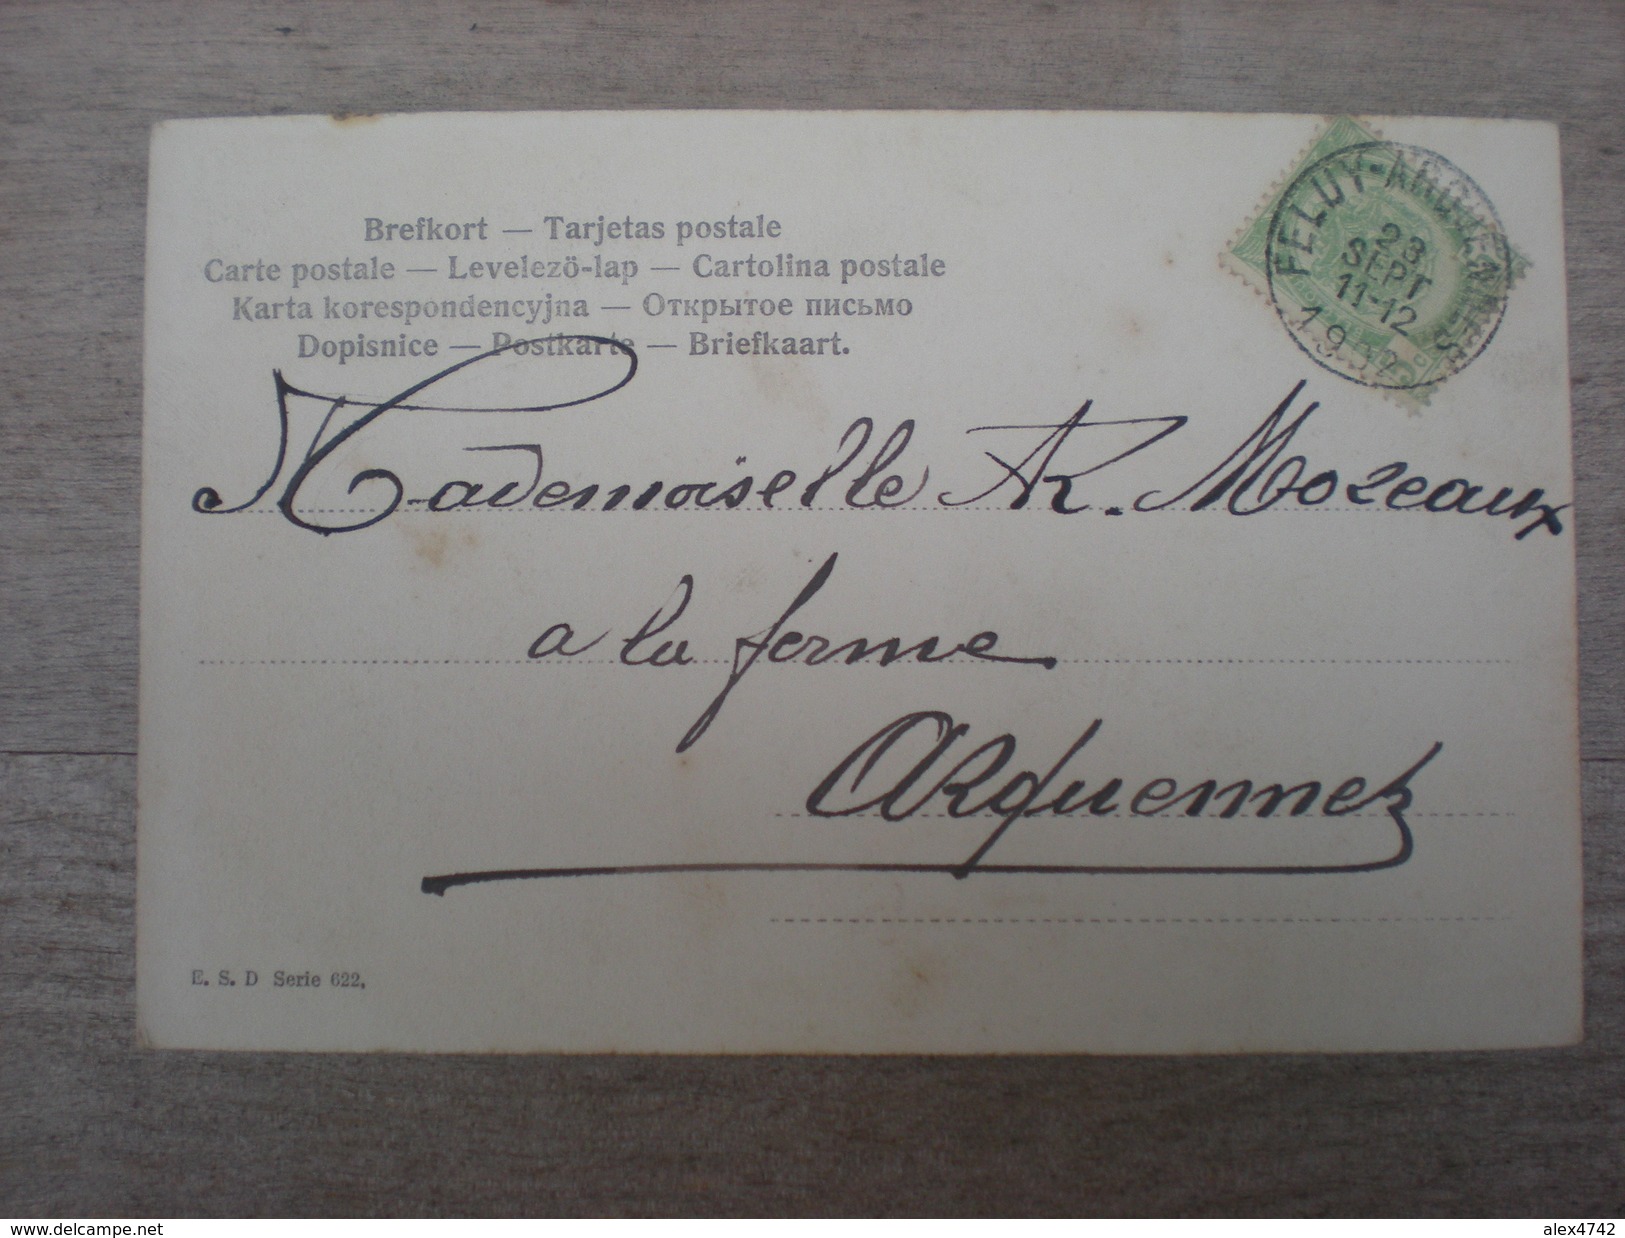 Brefkort — Tarjetas postale
Carte postale — Levelezö-lap — Cartolina postale
Karta korespondencyjna — Открытое письмо
Dopisnice — Postkarte — Briefkaart.
FELUY-ARQUENNES
23
SEPT
11-12
1902
Mademoiselle R. Mozeaux
a la ferme
Arquennes
E. S. D Serie 622,
www.delcampe.net
alex4742